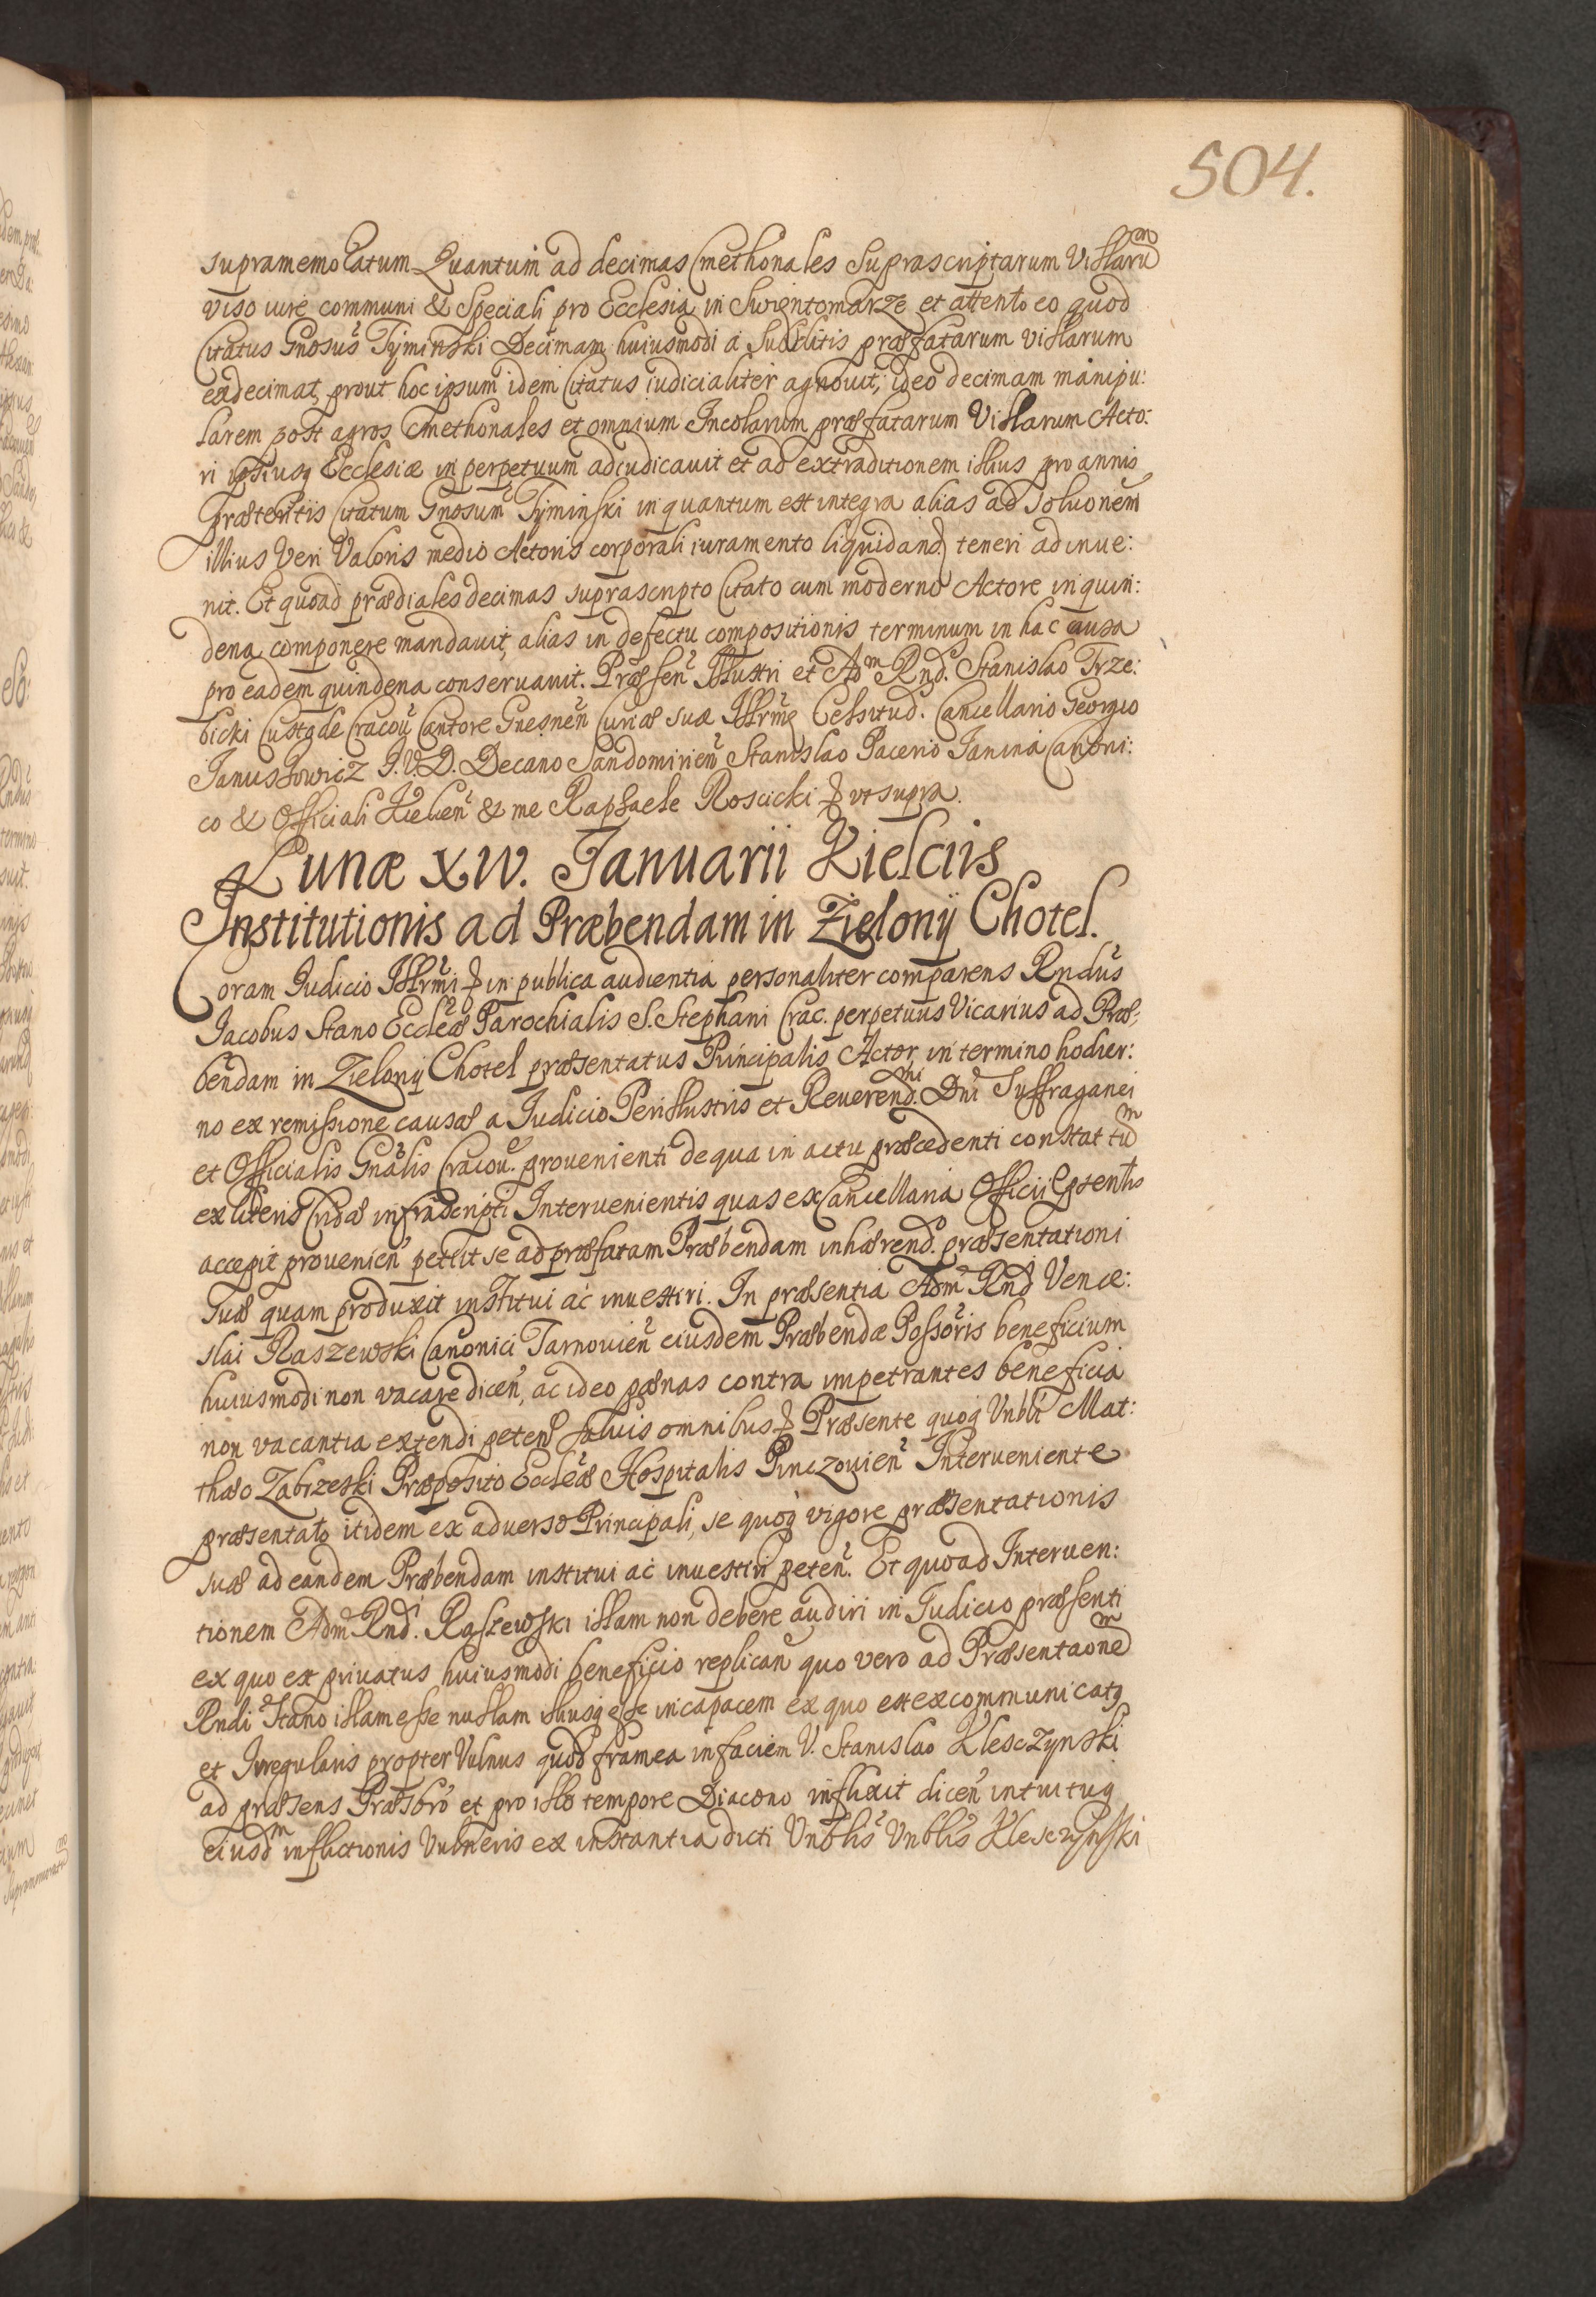 504.
supramemoratum Quantum ad decimas Cmethonales Suprascriptarum Villarum
viso iure communi & Speciali pro Ecclesia in Swientomarze et attento eo quod
Citatus Gnosus Tyminski Decimam huiusmodi a Subditis præfatarum villarum
exdecimat, prout hoc ipsum idem Citatus iudicialiter agnovit, ideo decimam manipu:
larem post agros Cmethonales et omnium Incolarum præfatarum Villarum Acto:
ri ipsiusq Ecclesiæ in perpetuum adiudicavit et ad extraditionem illius pro annis
præteritis Citatum Gnosum Tyminski in quantum est integra alias ad Soluonem
illius Veri Valoris medio Actoris corporali iuramento liquidand teneri adinue:
nit. Et quoad prædiales decimas suprascripto Citato cum moderno Actore in quin:
dena componere mandavit, alias in defectu compositionis terminum in hac causa
pro eadem quindena conseruauit. Præsen Illustri et Adm Rnd. Stanislao Trze:
bicki Custode Cracou Cantore Gnesnen Curiæ suæ Illrmæ Celsitud. Cancellario Georgio
Janussowicz J.V.D. Decano Sandomirien Stanislao Pacerio Janina Canoni:
co & Officiali Kielcen & me Raphaele Roscicki & vt supra.
Lunæ XIV. Januarii Kielciis
Institutionis ad Præbendam in Zielonij Chotel.
Coram Iudicio Illrmi & in publica audientia personaliter comparens Rndus
Jacobus Stano Eccleæ Parochialis S. Stephani Crac. perpetuus Vicarius ad Præ:
bendam in Zielonij Chotel præsentatus Principalis Actor in termino hodier:
no ex remissione causæ a Iudicio Perillustris et Reuerendmi. Dni Suffraganei
et Officialis Gnalis Cracou. prouenienti de qua in actu præcedenti constat tum
ex literis Cridæ infrascripti Interuenientis quas ex Cancellaria Officii
accepit prouenien petiit se ad præfatam Præbendam inhærend. præsentationi
suæ quam produxit institui ac inuestiri. In præsentia Adm Rnd Vence:
slai Raszewski Canonici Tarnouien eiusdem Præbendæ Possoris beneficium
huiusmodi non vacare dicen, ac ideo pænas contra impetrantes beneficia
non vacantia extendi peten saluis omnibus & Præsente quoq Vnbli Mat:
thæo Zabrzeski Præposito Eccleæ Hospitalis Pinczouien Interueniente
præsentato itidem ex aduerso Principali, se quoq vigore præsentationis
suæ ad eandem Præbendam institui ac inuestiri peten. Et quoad Interuen:
tionem Adm Rnd. Raszewski illam non debere audiri in Iudicio præsenti
ex quo est priuatus huiusmodi beneficio replican quo vero ad Præsentaonem
Rndi Stano illam esse nullam illiusq esse incapacem ex quo est excommunicatq
et Irregularis propter Vulnus quod framea in faciem V. Stanislao Klesczynski
ad præsens Præsbro et pro illo tempore Diacono inflixit dicen intuituq
eiusdm inflictionis Vulneris ex instantia dicti Vnblis Vnblis Klesczynski